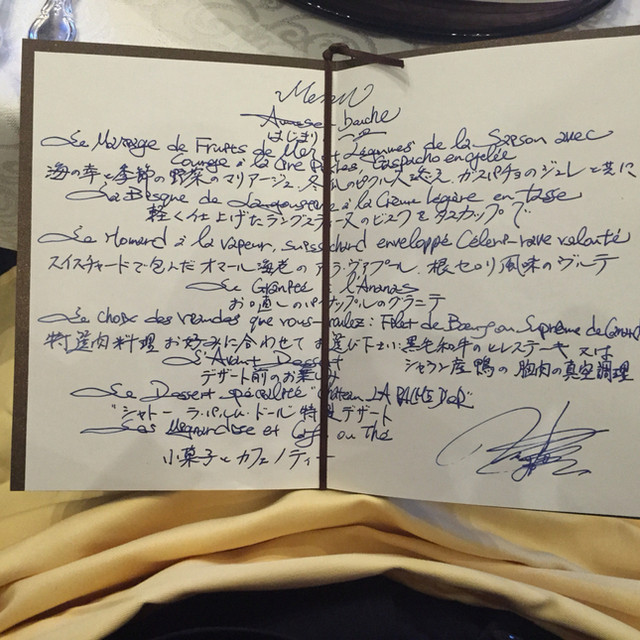 Menu
Amuse-bouche
はじまり
Le Mariage de Fruits de Mer et Légumes de la Saison avec
Courge à la Cire Gaspacho en gelée
海の幸と季節の野菜のマリアージュ、冬瓜のピクルス添え ガスパチョのジュレと共に
La Bisque de Langoustine à la Crème légère en tasse
軽く仕上げたラングスティーヌのビスク タスカップで
Le Homard à la vapeur, suisschard enveloppé Céleri-rave velouté
スイスチャードで包んだオマール海老のアラ・ヴァプール、根セロリ風味のヴルーテ
Le Granité à l'Ananas
お口直しのパイナップルのグラニテ
Le choix des viandes que vous voulez: Filet de Bœuf ou Suprême de Canard
特選肉料理 お好みに合わせてお選び下さい:黒毛和牛のヒレステーキ 又は
シャラン産鴨の胸肉の真空調理
L'Avant Dessert
デザート前のお楽しみ
Le Dessert spécialité "Château LA PALME D'OR"
"シャトー ラ・パルム・ドール" 特製デザート
Les Mignardise et Café ou thé
小菓子とカフェ/ティー